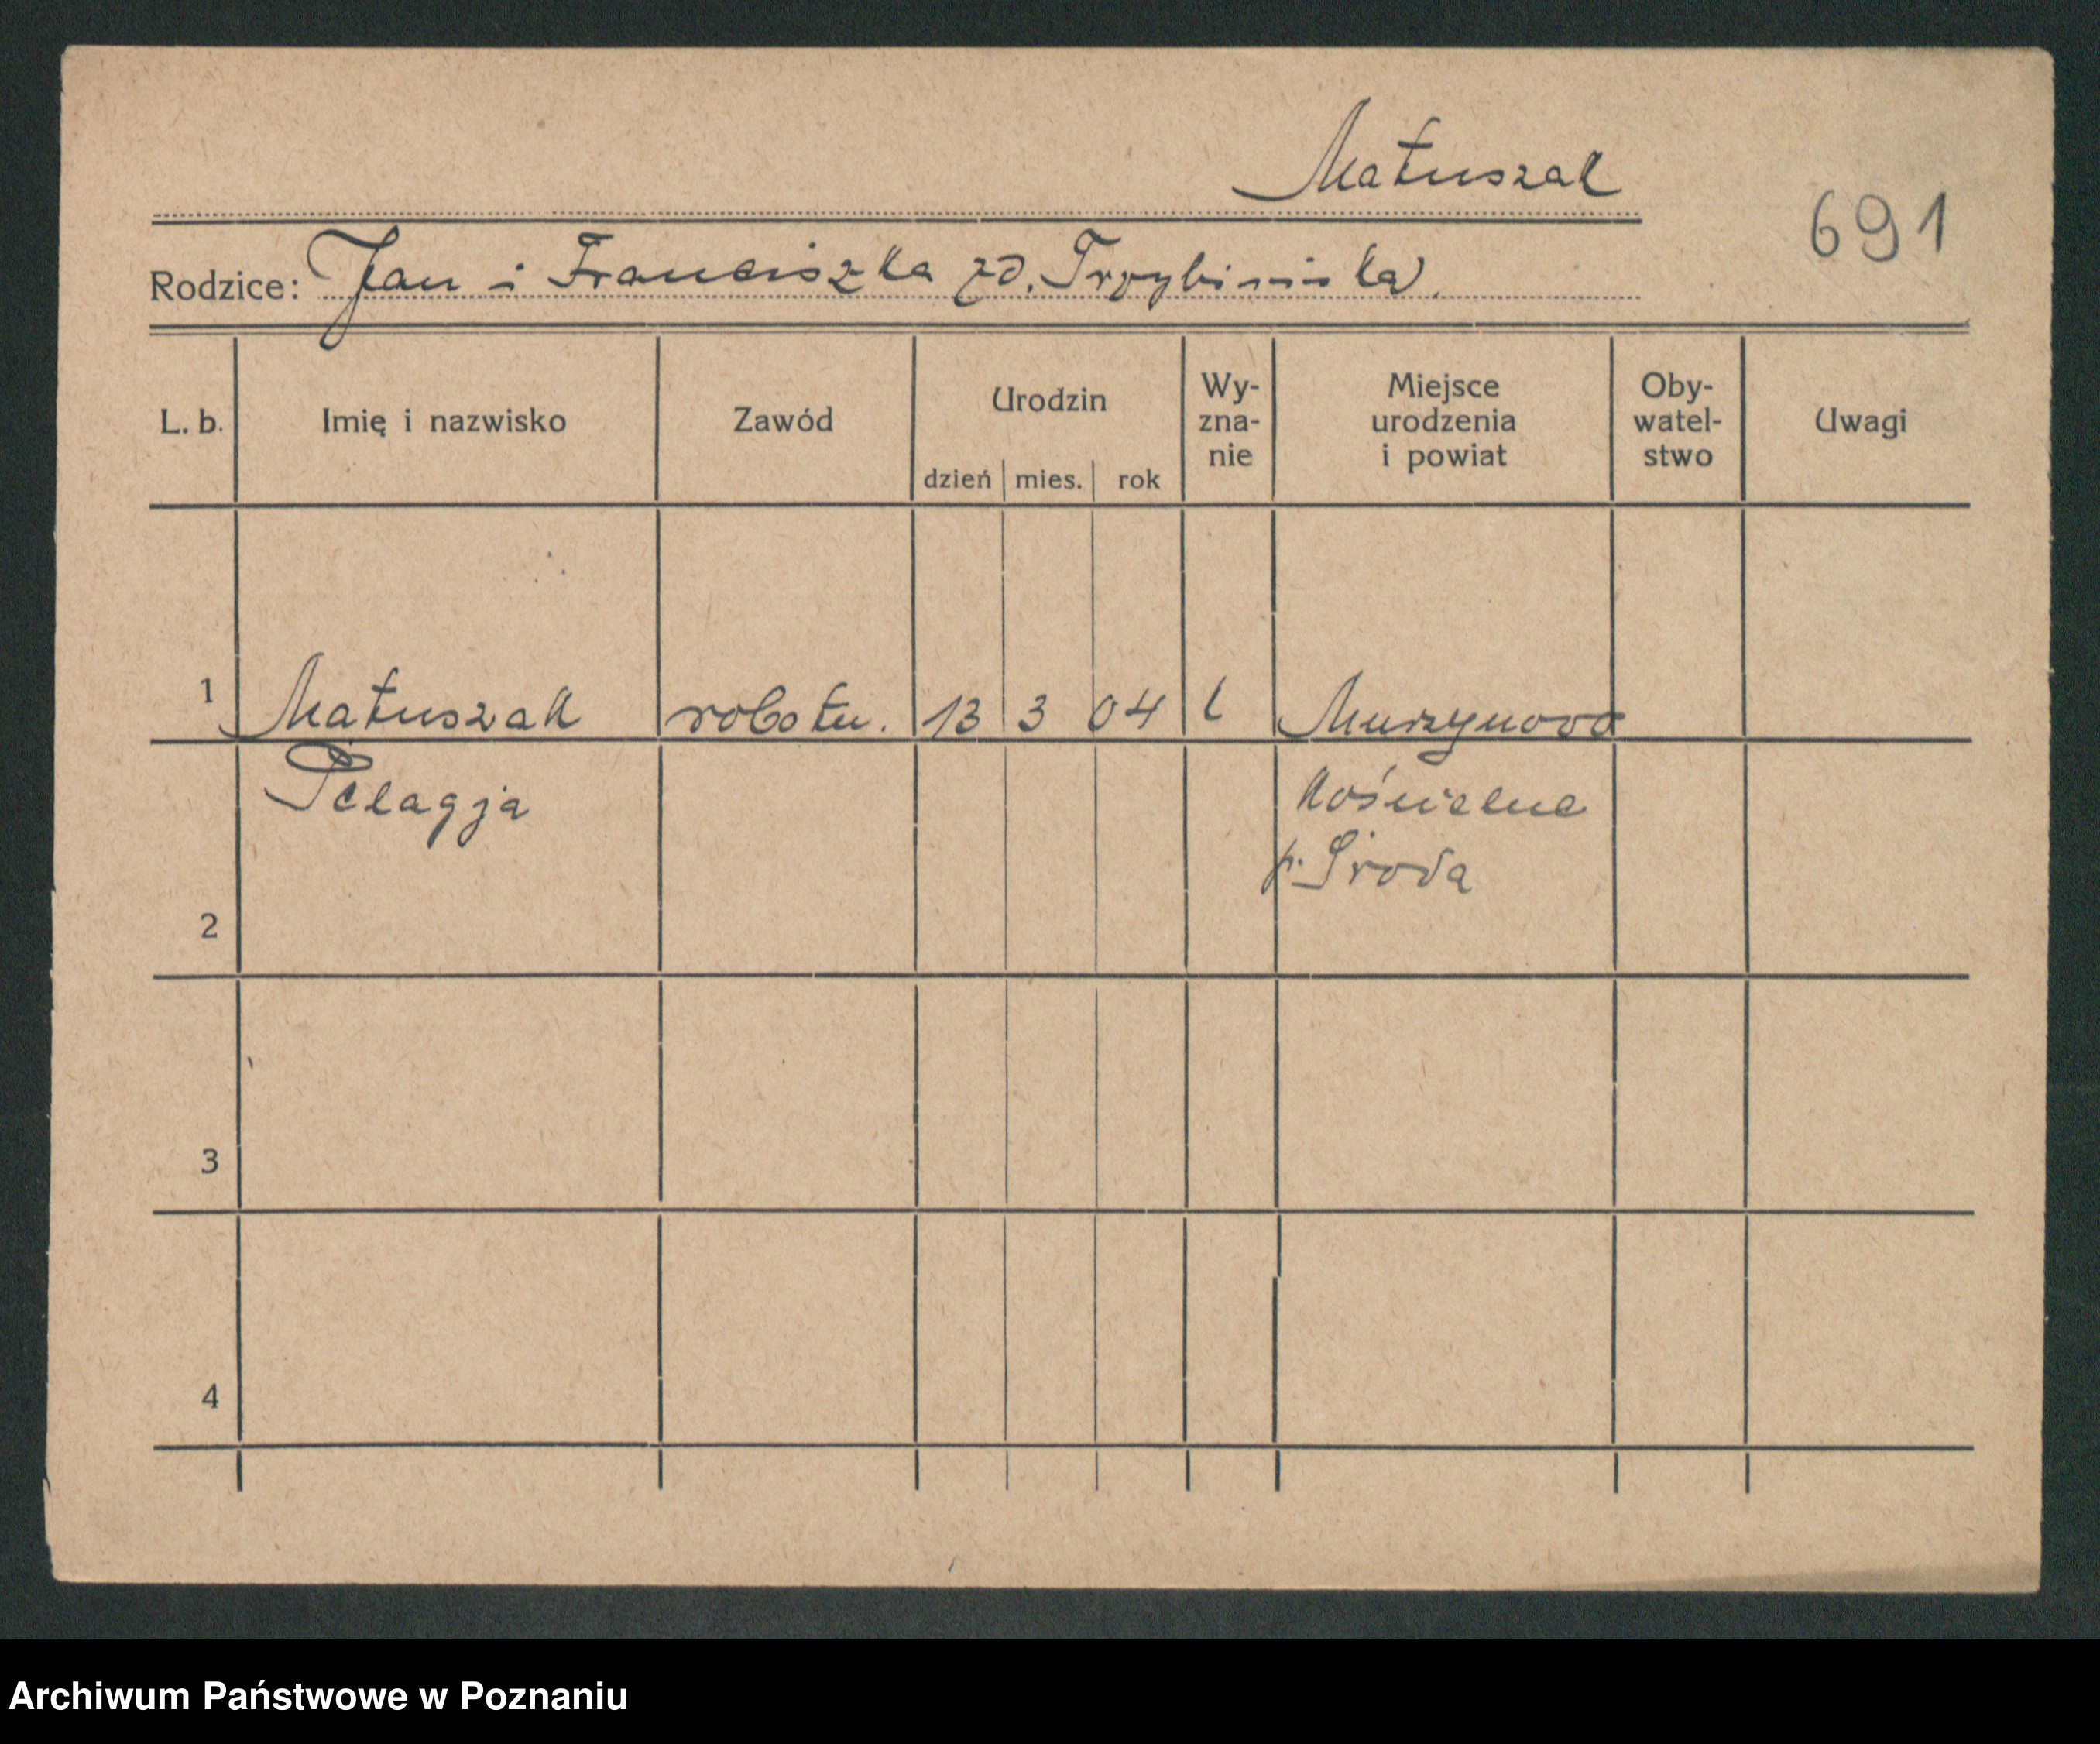 Matuszak
691
Rodzice: Jan i Franciszka zd.
L. b. Imię i nazwisko Zawód Urodzin Wy- zna- nie Miejsce urodzenia i powiat Oby- watel- stwo Uwagi
dzień mies. rok
1 Matuszak robotn. 13 3 04 Murzynowo
Pelagja Kościelne
p. Środa
2
3
4
Archiwum Państwowe w Poznaniu